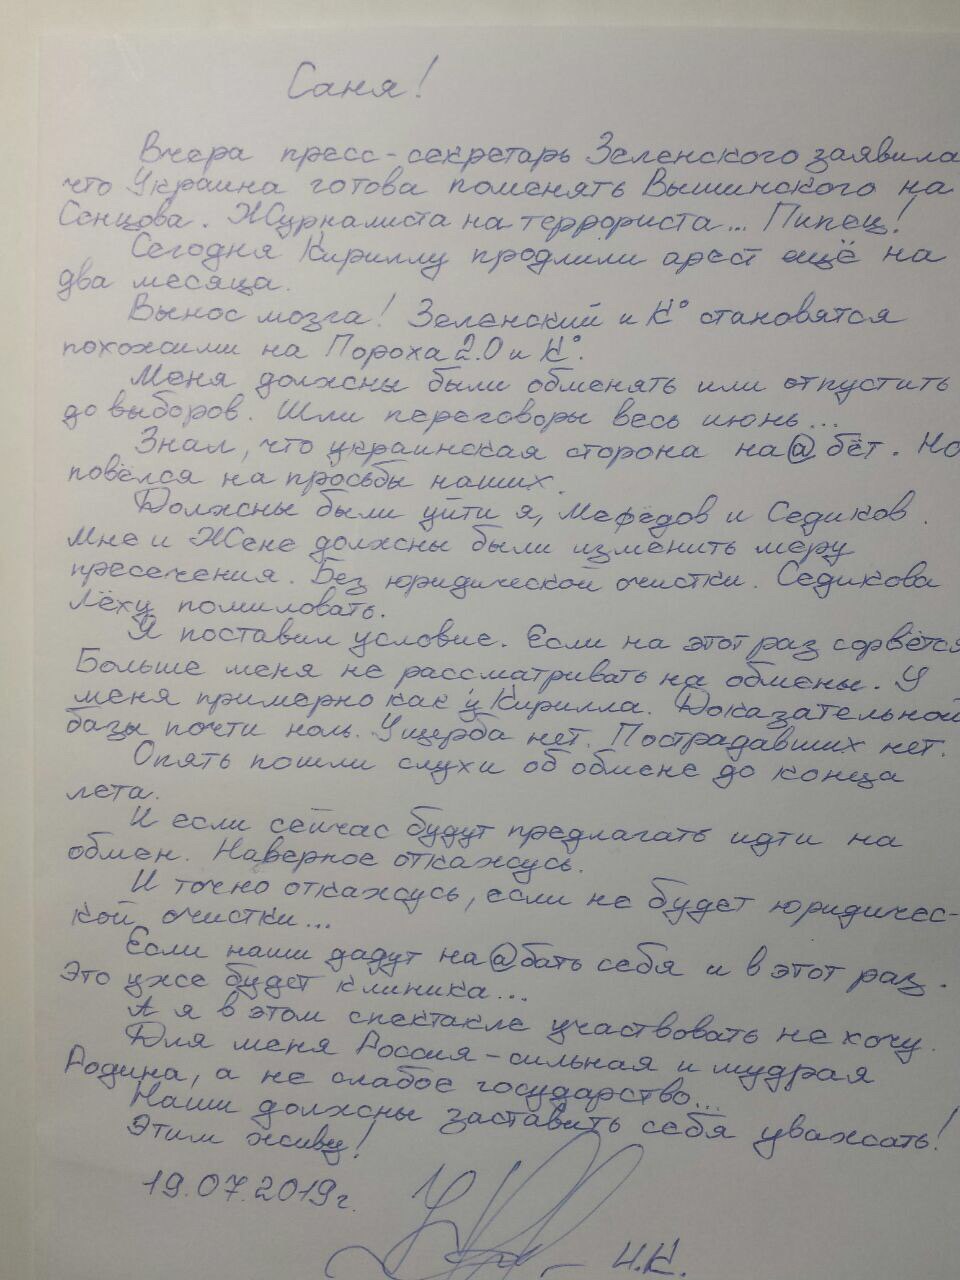 Саня!
Вчера пресс-секретарь Зеленского заявила
что Украина готова поменять Вышинского на
Сенцова. Журналиста на террориста... Пипец!
Сегодня Кириллу продлили арест ещё на
два месяца.
Вынос мозга! Зеленский и К° становятся
похожими на Пороха 2.0 и К°.
Меня должны были обменять или отпустить
до выборов. Шли переговоры весь июнь...
Знал, что украинская сторона на@бёт. Но
повёлся на просьбы наших.
Должны были уйти я, Мефёдов и Седиков.
Мне и Жене должны были изменить меру
пресечения. Без юридической очистки. Седикова
Лёху помиловать.
Я поставил условие. Если на этот раз сорвётся
Больше меня не рассматривать на обмены. У
меня примерно как у Кирилла. Доказательной
базы почти ноль. Ущерба нет. Пострадавших нет.
Опять пошли слухи об обмене до конца
лета.
И если сейчас будут предлагать идти на
обмен. Наверное откажусь.
И точно откажусь, если не будет юридичес-
кой очистки...
Если наши дадут на@бать себя и в этот раз.
Это уже будет клиника...
А я в этом спектакле участвовать не хочу.
Для меня Россия - сильная и мудрая
Родина, а не слабое государство...
Наши должны заставить себя уважать!
Этим живу!
19.07.2019г.
Н.К.